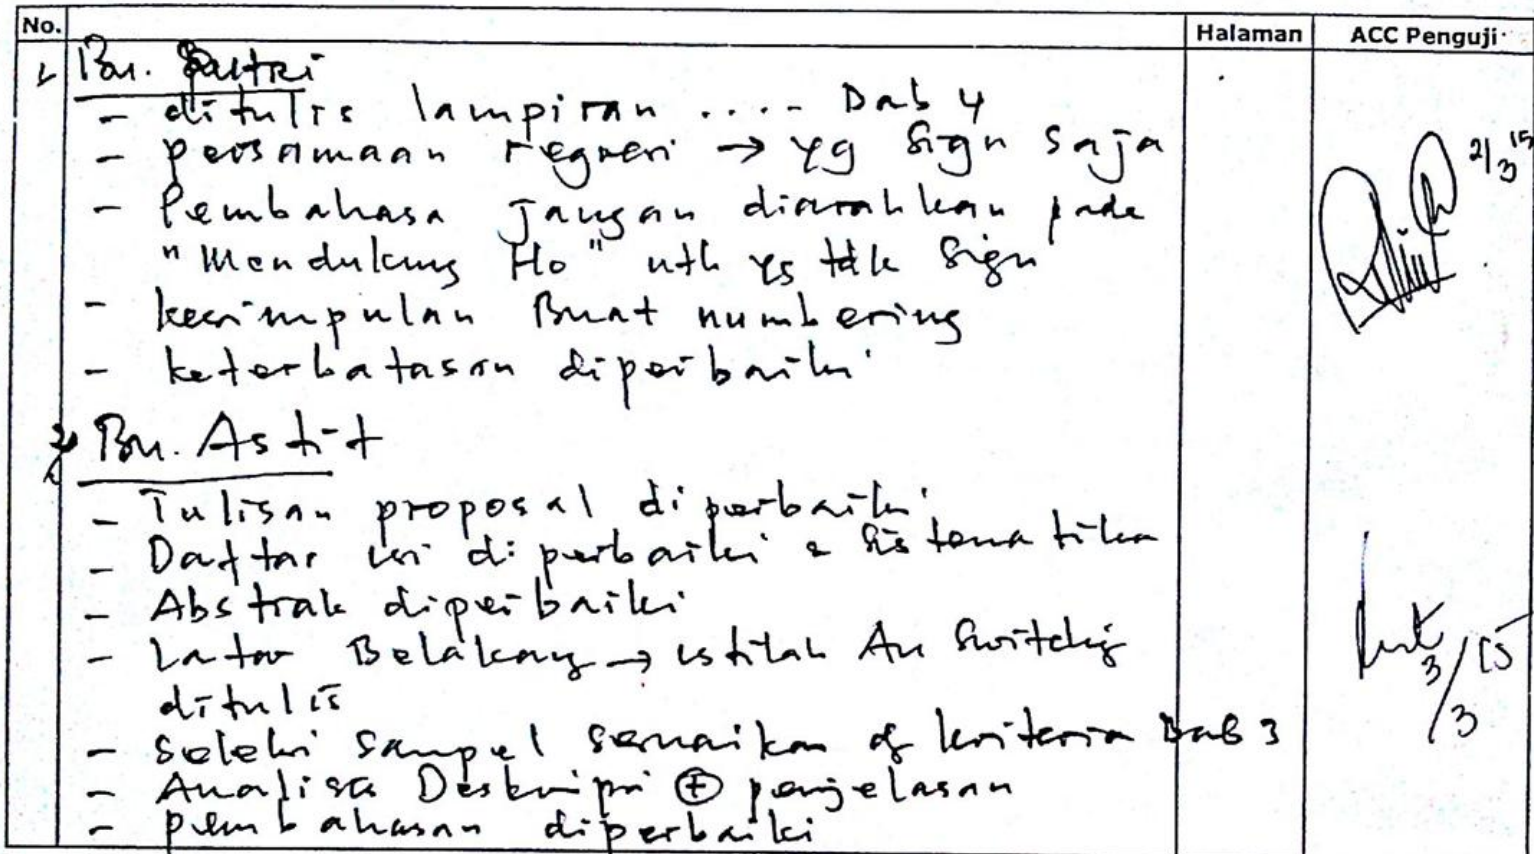 No. Halaman ACC Penguji
1. Bu. Sastri
- ditulis lampiran ..... Bab 4
- persamaan regresi → yg sign saja
- Pembahasa jangan diarahkan pada
"Mendukung Ho" utk yg tdk sign
- kesimpulan Buat numbering
- keterbatasan diperbaiki
2/3 15
2. Bu. Astit
- Tulisan proposal diperbaiki
- Daftar isi diperbaiki & sistematika
- Abstrak diperbaiki
- Latar Belakang → istilah Au Switchig
ditulis
- Seleksi sampel sesuaikan dg kriteria Bab 3
- Analisa Deskripsi + penjelasan
- pembahasan diperbaiki
3/3 15